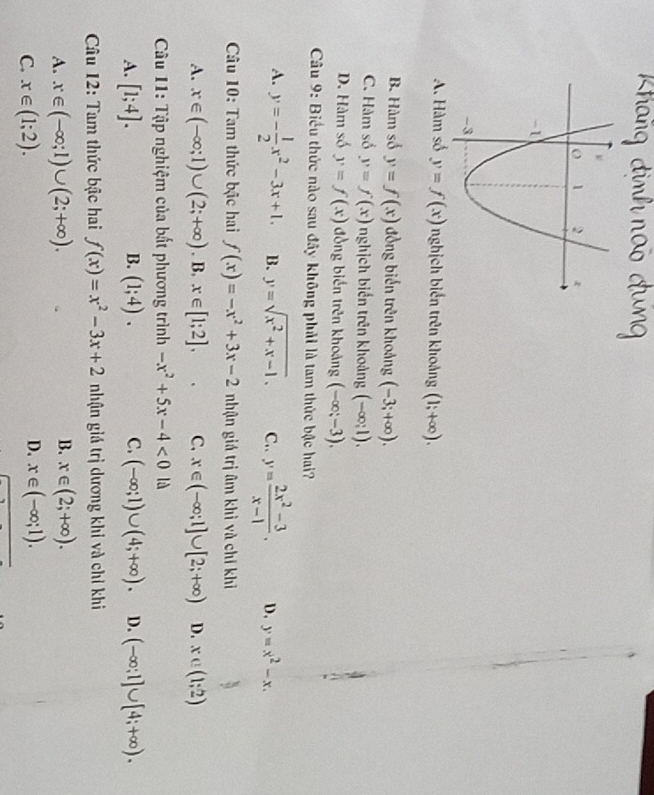 Khẳng định nào đúng
y
O 1 2 x
-1
-3
A. Hàm số y = f(x) nghịch biến trên khoảng (1;+∞).
B. Hàm số y = f(x) đồng biến trên khoảng (-3;+∞).
C. Hàm số y = f(x) nghịch biến trên khoảng (-∞;1).
D. Hàm số y = f(x) đồng biến trên khoảng (-∞;-3).
Câu 9: Biểu thức nào sau đây không phải là tam thức bậc hai?
A. y = -1/2 x² - 3x + 1. B. y = √(x² + x - 1). C.. y = (2x² - 3)/(x - 1). D. y = x² - x.
Câu 10: Tam thức bậc hai f(x) = -x² + 3x - 2 nhận giá trị âm khi và chỉ khi
A. x ∈ (-∞;1) ∪ (2;+∞). B. x ∈ [1;2]. C. x ∈ (-∞;1] ∪ [2;+∞) D. x ∈ (1;2)
Câu 11: Tập nghiệm của bất phương trình -x² + 5x - 4 < 0 là
A. [1;4]. B. (1;4). C. (-∞;1) ∪ (4;+∞). D. (-∞;1] ∪ [4;+∞).
Câu 12: Tam thức bậc hai f(x) = x² - 3x + 2 nhận giá trị dương khi và chỉ khi
A. x ∈ (-∞;1) ∪ (2;+∞). B. x ∈ (2;+∞).
C. x ∈ (1;2). D. x ∈ (-∞;1).